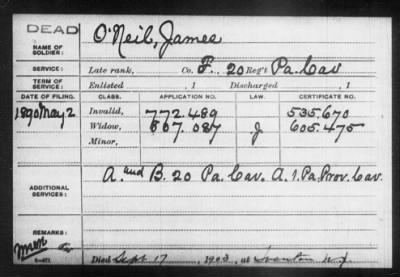 DEAD
NAME OF SOLDIER: O'Neil, James
SERVICE: Late rank, Co. F. 20 Reg't Pa. Cav
TERM OF SERVICE: Enlisted , 1 Discharged , 1
DATE OF FILING. CLASS. APPLICATION NO. LAW. CERTIFICATE NO.
1890 May 2 Invalid, 772.489 535.670
Widow, 807.087 J 605.475
Minor,
ADDITIONAL SERVICES: A. and B. 20 Pa. Cav. A. 1. Pa. Prov. Cav.
REMARKS:
Died Sept 17, 1903, at N.J.